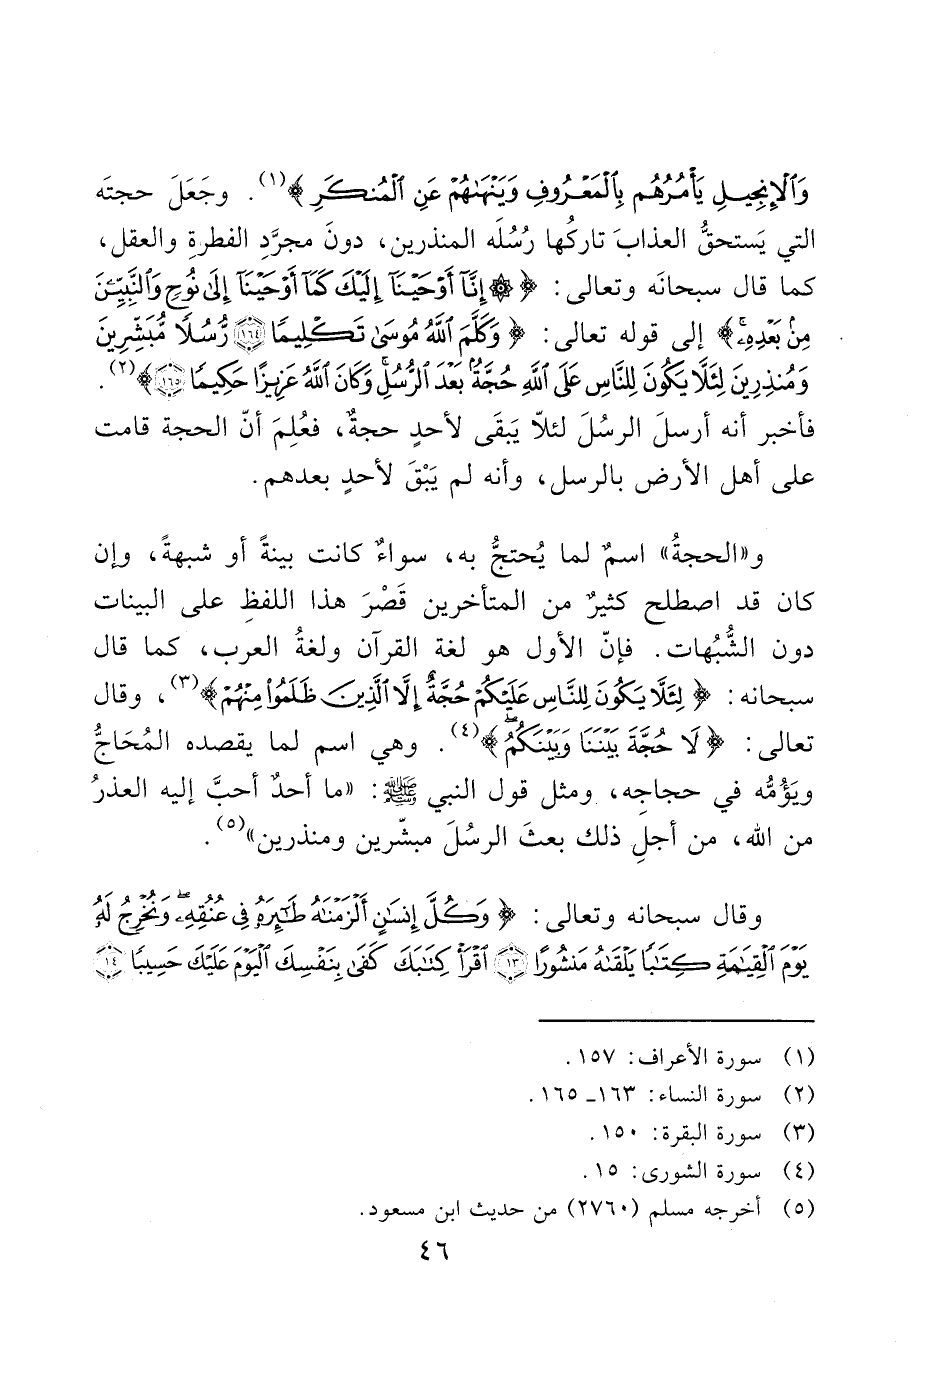 وَٱلْإِنجِيلِ يَأْمُرُهُم بِٱلْمَعْرُوفِ وَيَنْهَىٰهُمْ عَنِ ٱلْمُنكَرِ ﴾(١). وجَعَلَ حجتَه
التي يَستحقُّ العذابَ تاركها رُسُلَه المنذرين، دونَ مجرَّدِ الفطرةِ والعقل،
كما قال سبحانَه وتعالى: ﴿ ۞ إِنَّآ أَوْحَيْنَآ إِلَيْكَ كَمَآ أَوْحَيْنَآ إِلَىٰ نُوحٍ وَٱلنَّبِيِّـۧنَ
مِنۢ بَعْدِهِۦۚ ﴾ إلى قوله تعالى: ﴿ وَكَلَّمَ ٱللَّهُ مُوسَىٰ تَكْلِيمًا ١٦٤ رُّسُلًا مُّبَشِّرِينَ
وَمُنذِرِينَ لِئَلَّا يَكُونَ لِلنَّاسِ عَلَى ٱللَّهِ حُجَّةٌۢ بَعْدَ ٱلرُّسُلِۚ وَكَانَ ٱللَّهُ عَزِيزًا حَكِيمًا ١٦٥ ﴾(٢).
فأخبر أنه أرسلَ الرسُلَ لئلاّ يَبقَى لأحدٍ حجةٌ، فعُلِمَ أنّ الحجة قامت
على أهل الأرض بالرسل، وأنه لم يَبْقَ لأحدٍ بعدهم.
و«الحجةُ» اسمٌ لما يُحتجُّ به، سواءٌ كانت بينةً أو شبهةً، وإن
كان قد اصطلح كثيرٌ من المتأخرين قَصْرَ هذا اللفظِ على البينات
دون الشُّبُهات. فإنّ الأول هو لغة القرآن ولغةُ العرب، كما قال
سبحانه: ﴿ لِئَلَّا يَكُونَ لِلنَّاسِ عَلَيْكُمْ حُجَّةٌ إِلَّا ٱلَّذِينَ ظَلَمُوا۟ مِنْهُمْ ﴾(٣)، وقال
تعالى: ﴿ لَا حُجَّةَ بَيْنَنَا وَبَيْنَكُمُۖ ﴾(٤). وهي اسم لما يقصده المُحَاجُّ
ويَؤُمُّه في حجاجِه، ومثل قول النبي ﷺ: «ما أحدٌ أحبَّ إليه العذرُ
من الله، من أجلِ ذلك بعثَ الرسُلَ مبشّرين ومنذرين»(٥).
وقال سبحانه وتعالى: ﴿ وَكُلَّ إِنسَٰنٍ أَلْزَمْنَٰهُ طَٰٓئِرَهُۥ فِى عُنُقِهِۦۖ وَنُخْرِجُ لَهُۥ
يَوْمَ ٱلْقِيَٰمَةِ كِتَٰبًا يَلْقَىٰهُ مَنشُورًا ١٣ ٱقْرَأْ كِتَٰبَكَ كَفَىٰ بِنَفْسِكَ ٱلْيَوْمَ عَلَيْكَ حَسِيبًا ١٤
(١) سورة الأعراف: ١٥٧.
(٢) سورة النساء: ١٦٣ـ ١٦٥.
(٣) سورة البقرة: ١٥٠.
(٤) سورة الشورى: ١٥.
(٥) أخرجه مسلم (٢٧٦٠) من حديث ابن مسعود.
٤٦